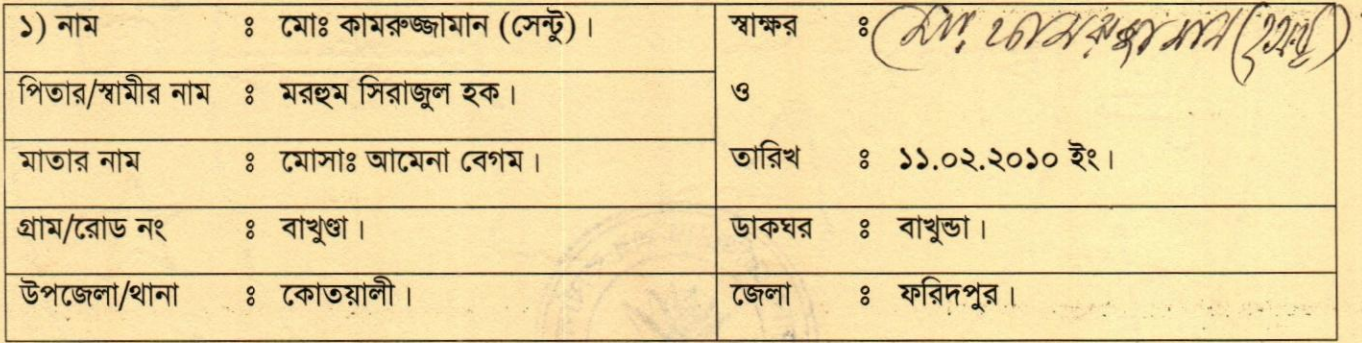 ১) নাম ঃ মোঃ কামরুজ্জামান (সেন্টু)। স্বাক্ষর ঃ মোঃ কামরুজ্জামান (সেন্টু)
পিতার/স্বামীর নাম ঃ মরহুম সিরাজুল হক। ও
মাতার নাম ঃ মোসাঃ আমেনা বেগম। তারিখ ঃ ১১.০২.২০১০ ইং।
গ্রাম/রোড নং ঃ বাখুণ্ডা। ডাকঘর ঃ বাখুন্ডা।
উপজেলা/থানা ঃ কোতয়ালী। জেলা ঃ ফরিদপুর।